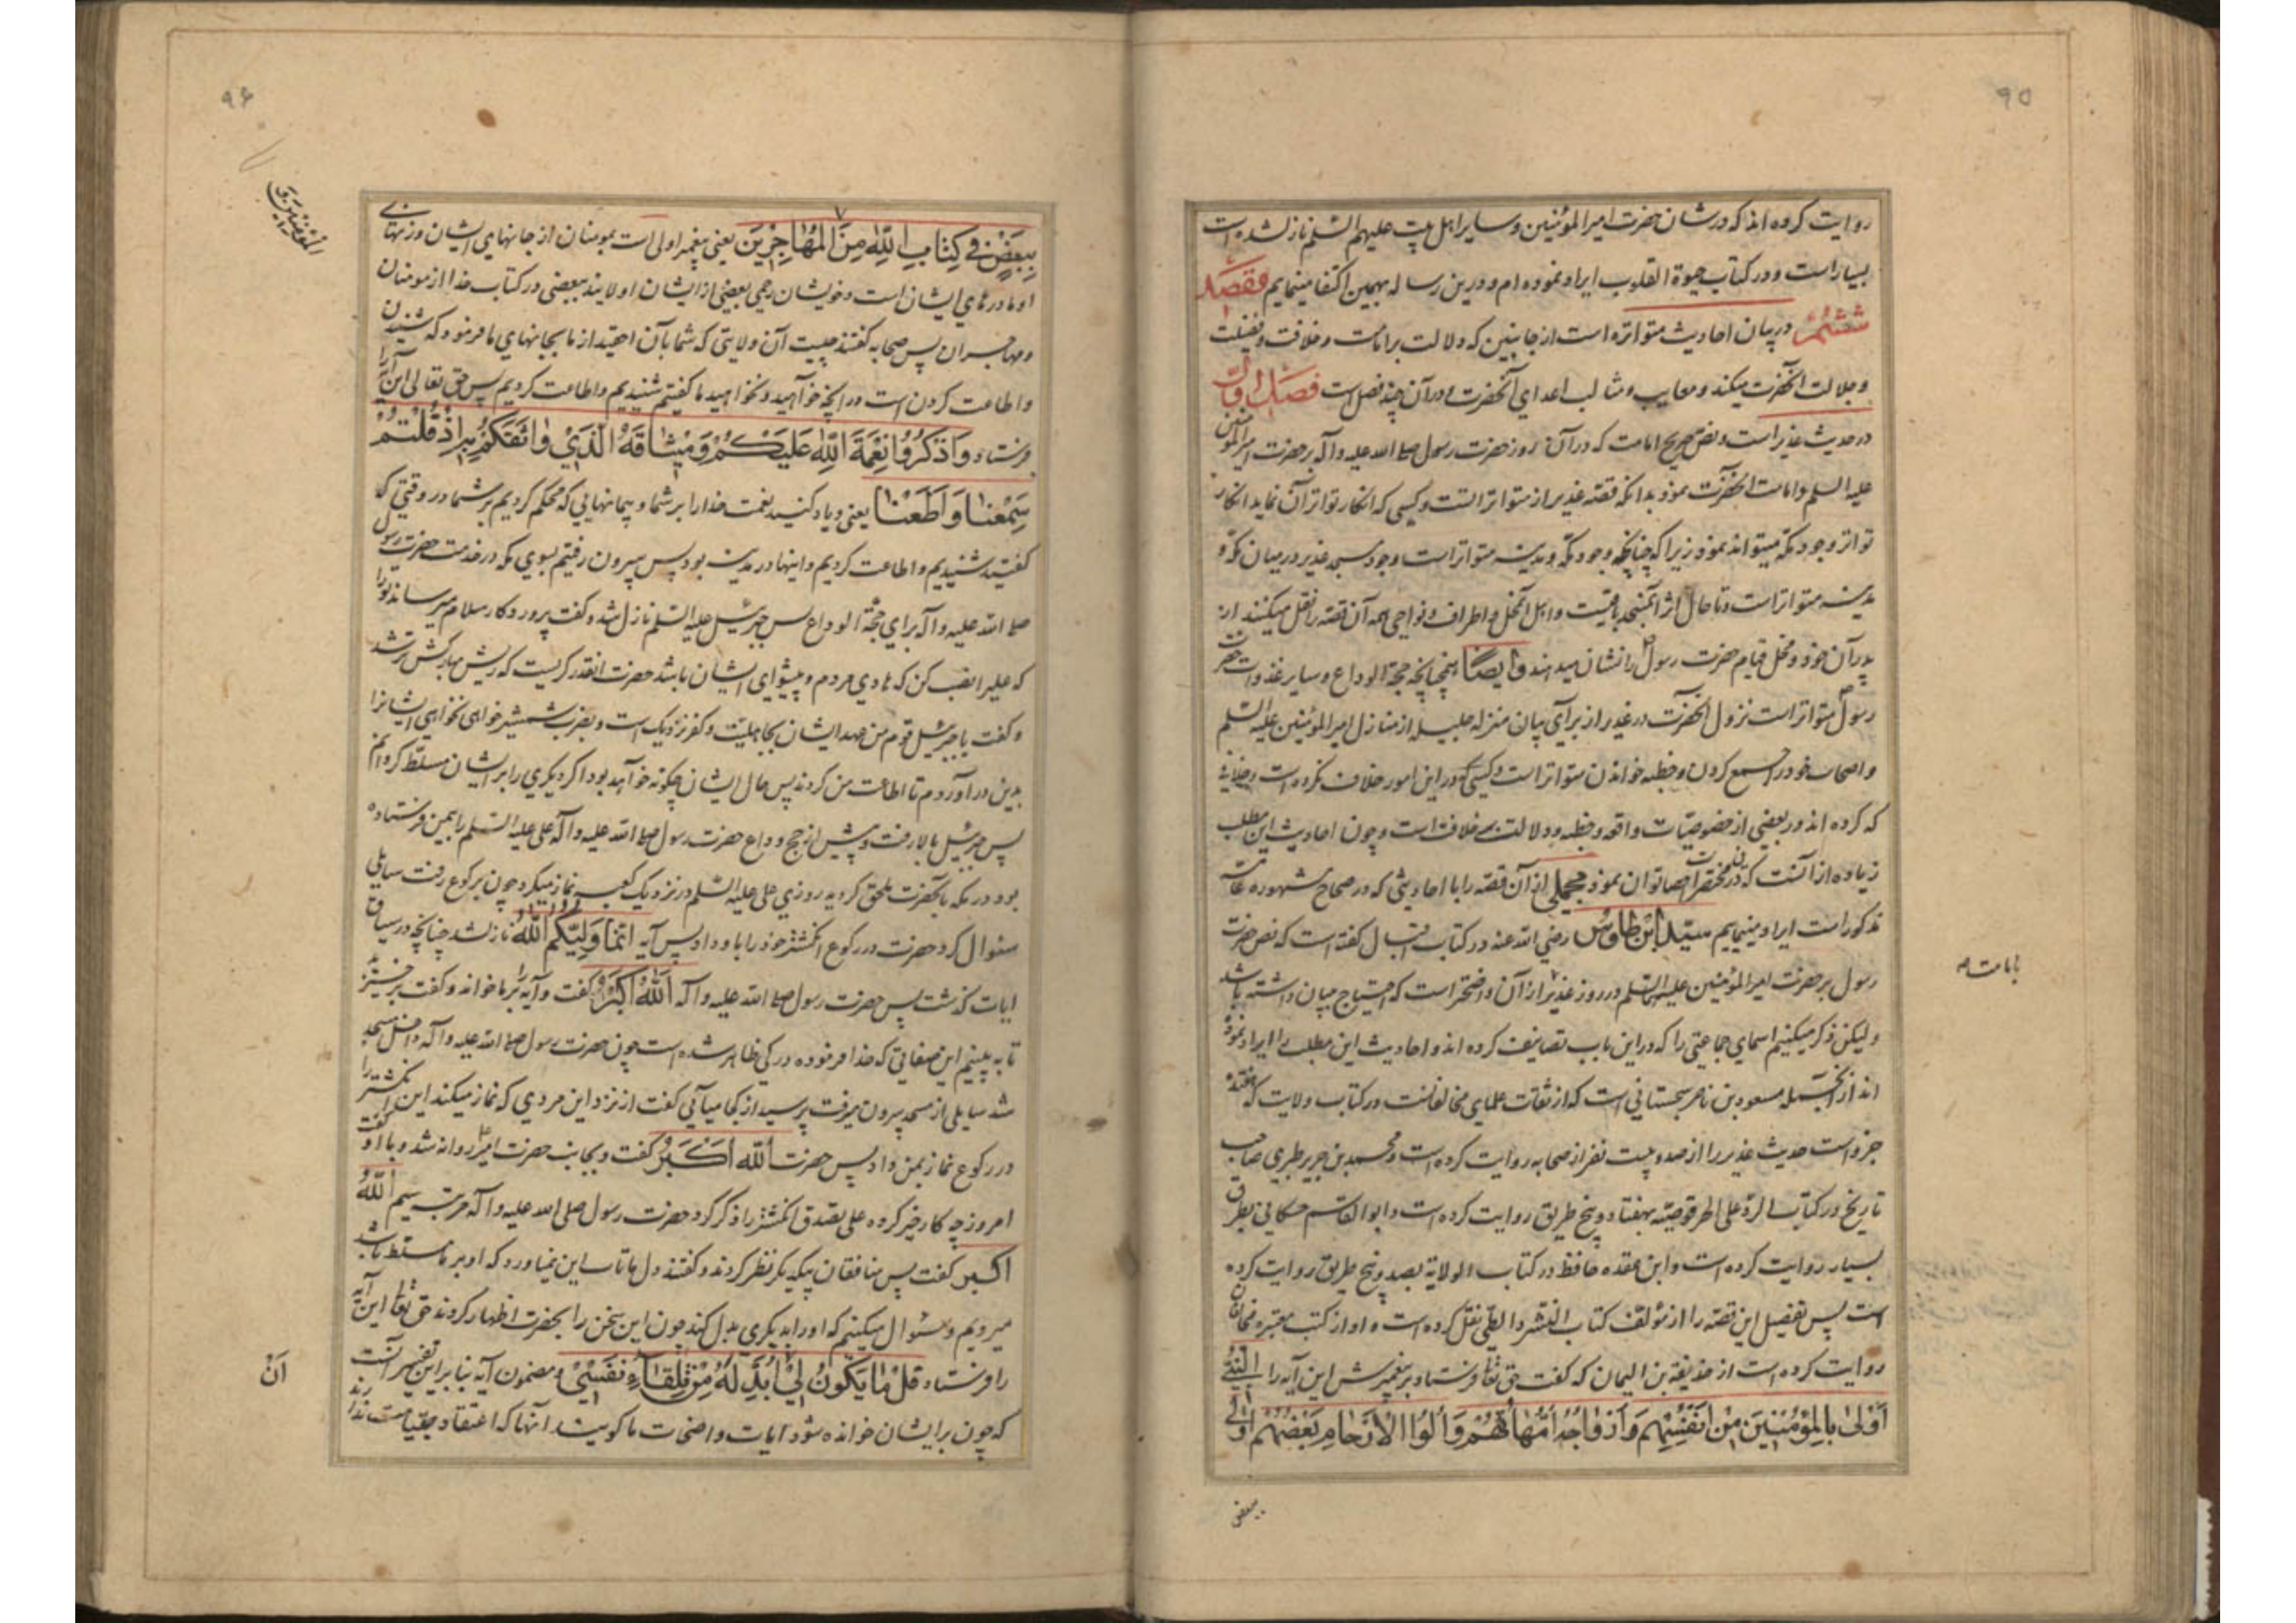 ۹۵
روایت کرده اند که در شان حضرت امیر المؤمنین و سایر اهل بیت علیهم السلم نازل شده است
بسیار است و در کتاب حیوة القلوب ایراد نموده ام و درین رساله بهمین اکتفا مینمایم مقصد
ششم در بیان احادیث متواتره است از جانبین که دلالت بر امامت و خلافت و فضیلت
و جلالت آنحضرت میکند و معایب و مثالب اعدای آنحضرت و در آن چند فصل است فصل اول
در حدیث غدیر است و نص صریح امامت که در آن روز حضرت رسول صلی الله علیه و آله بر حضرت امیر المؤمنین
علیه السلم و امامت آنحضرت نمود بدانکه قصه غدیر از متواتراتست و کسی که انکار تواتر آن نماید انکار
تواتر وجود مکه میتواند نمود زیرا که چنانچه وجود مکه و مدینه متواتر است وجود مسجد غدیر در میان مکه و
مدینه متواتر است و تا حال اثر آنمسجد باقیست و اهل آنمحل و اطراف و نواحی همه آن قصه را نقل میکنند از
پدران خود و محل قیام حضرت رسول را نشان میدهند و ایضا همچنانچه حجة الوداع و سایر غزوات حضرت
رسول متواتر است نزول آنحضرت در غدیر از برای بیان منزله جلیله از منازل امیر المؤمنین علیه السلم
و اصحاب خود را جمع کردن و خطبه خواندن متواتر است و کسی در این امور خلاف نکرده است و خلافی
که کرده اند در بعضی از خصوصیات واقعه و خطبه و دلالت بر خلافت است و چون احادیث این مطلب
زیاده از آنست که درین مختصر احصا توان نمود مجملی از آن قصه را با احادیثی که در صحاح مشهوره عامه
مذکور است ایراد مینماییم سید ابن طاوس رضی الله عنه در کتاب اقبال گفته است که نص حضرت
رسول بر حضرت امیر المؤمنین علیهما السلم در روز غدیر از آن واضحتر است که احتیاج ببیان داشته باشد
بامامت
و لیکن ذکر میکنیم اسمای جماعتی را که در این باب تصانیف کرده اند و احادیث این مطلب را ایراد نموده
اند از آنجمله مسعود بن ناصر سجستانی است که از ثقات علمای مخالفانست در کتاب ولایت که هفده
جزو است حدیث غدیر را از صد و بیست نفر از صحابه روایت کرده است و محمد بن جریر طبری صاحب
تاریخ در کتاب الرد علی الحرقوصیه بهفتاد و پنج طریق روایت کرده است و ابو القاسم حسکانی بطرق
بسیار روایت کرده است و ابن عقده حافظ در کتاب الولایة بصد و پنج طریق روایت کرده
است پس تفصیل این قصه را از مؤلف کتاب النشر و الطی نقل کرده است و او از کتب معتبره مخالفان
روایت کرده است از حذیفة بن الیمان که گفت حق تعا فرستاد بر پیغمبرش این آیه را النبی
أولی بالمؤمنین من انفسهم و ازواجه امهاتهم و اولوا الارحام بعضهم اولی
ببعض
۹۶
ببعض فی کتاب الله من المهاجرین یعنی پیغمبر اولی است بمومنان از جانهای ایشان و زنهای
او مادرهای ایشان است و خویشان رحمی بعضی از ایشان اولایند ببعضی در کتاب خدا از مومنان
و مهاجران پس صحابه گفتند چیست آن ولایتی که شما بآن احقید از ما بجانهای ما فرمود که شنیدن
و اطاعت کردن است در انچه خواهید و نخواهید ما گفتیم شنیدیم و اطاعت کردیم پس حق تعالی این آیه را
فرستاد و اذکروا نعمة الله علیکم و میثاقه الذی واثقکم به اذ قلتم
سمعنا و اطعنا یعنی و یاد کنید نعمت خدا را بر شما و پیمانهایی که محکم کردیم بر شما در وقتی که
گفتید شنیدیم و اطاعت کردیم و اینها در مدینه بود پس بیرون رفتیم بسوی مکه در خدمت حضرت رسول
صلی الله علیه و آله برای حجة الوداع پس جبرئیل علیه السلم نازل شد و گفت پروردگار سلام میرساند تو را
که علی را نصب کن که هادی مردم و پیشوای ایشان باشد حضرت انقدر گریست که ریش مبارکش تر شد
و گفت یا جبرئیل قوم من عهد ایشان بجاهلیت و کفر نزدیک است و بضرب شمشیر خواهی نخواهی ایشانرا
بدین در آوردم تا اطاعت من کردند پس حال ایشان چگونه خواهد بود اگر دیگری را بر ایشان مسلط کردانم
پس جبرئیل بالا رفت و پیش از حج وداع حضرت رسول صلی الله علیه و آله علی علیه السلم را بیمن فرستاده
بود در مکه بآنحضرت ملحق گردید روزی علی علیه السلم در نزدیک کعبه نماز میکرد چون برکوع رفت سایلی
سئوال کرد حضرت در رکوع انگشتر خود را باو داد پس آیه انما ولیکم الله نازل شد چنانچه در سیاق
ایات گذشت پس حضرت رسول صلی الله علیه و آله الله اکبر گفت و آیه را بر ما خواند و گفت برخیزید
تا به بینیم این صفاتی که خدا فرموده در کی ظاهر شده است چون حضرت رسول صلی الله علیه و آله داخل مسجد
شد سایلی از مسجد بیرون میرفت پرسید از کجا میآئی گفت از نزد این مردی که نماز میکند این انگشتر را
در رکوع نماز بمن داد پس حضرت الله اکبر گفت و بجانب حضرت امیر روانه شد و با او گفت
امروز چه کار خیر کرده علی تصدق انگشتر را ذکر کرد حضرت رسول صلی الله علیه و آله مرتبه سیم الله
اکبر گفت پس منافقان بیکدیگر نظر کردند و گفتند دل ما تاب این نمیاورد که او بر ما مسلط باشد
میرویم و سئوال میکنیم که او را بدیگری بدل کند چون این سخن را بحضرت اظهار کردند حق تعا این آیه
را فرستاد قل ما یکون لی ان ابدله من تلقاء نفسی و مضمون آیه بنا براین تفسیر آنست
أن
که چون بر ایشان خوانده شود آیات واضحات ما گویند آنها که اعتقاد بقیامت ندارند